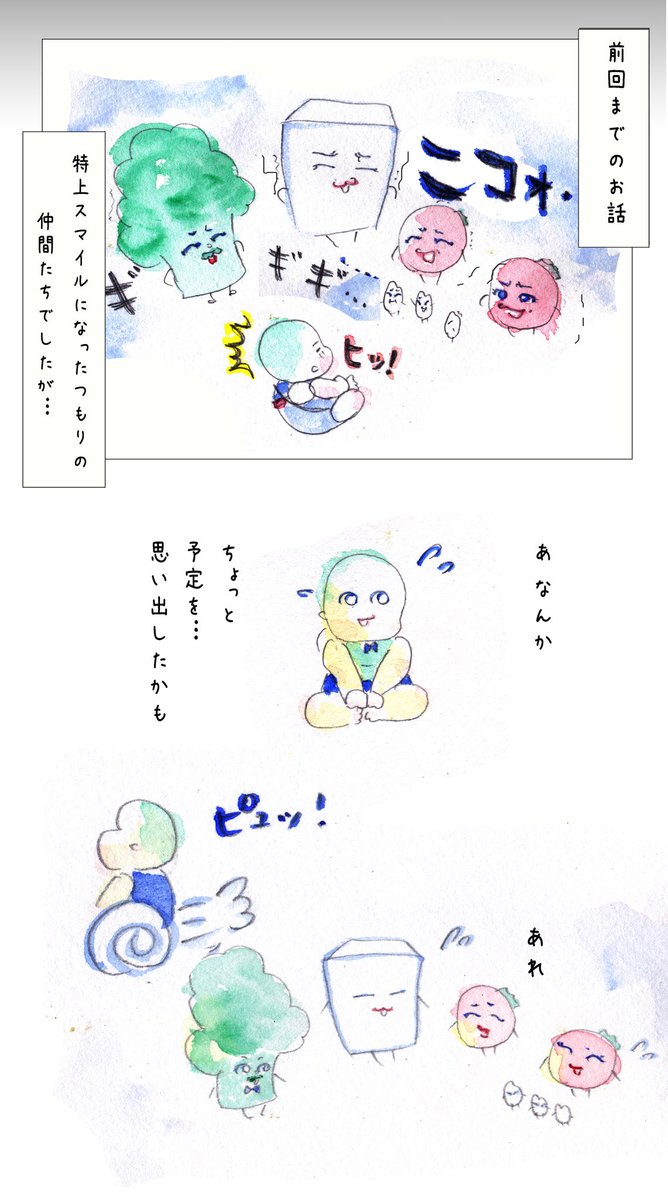 前回までのお話
ニコォ.
ギギ…
ギ
ヒッ!
特上スマイルになったつもりの
仲間たちでしたが…
あ なんか
ちょっと
予定を…
思い出したかも
ピュッ!
あれ